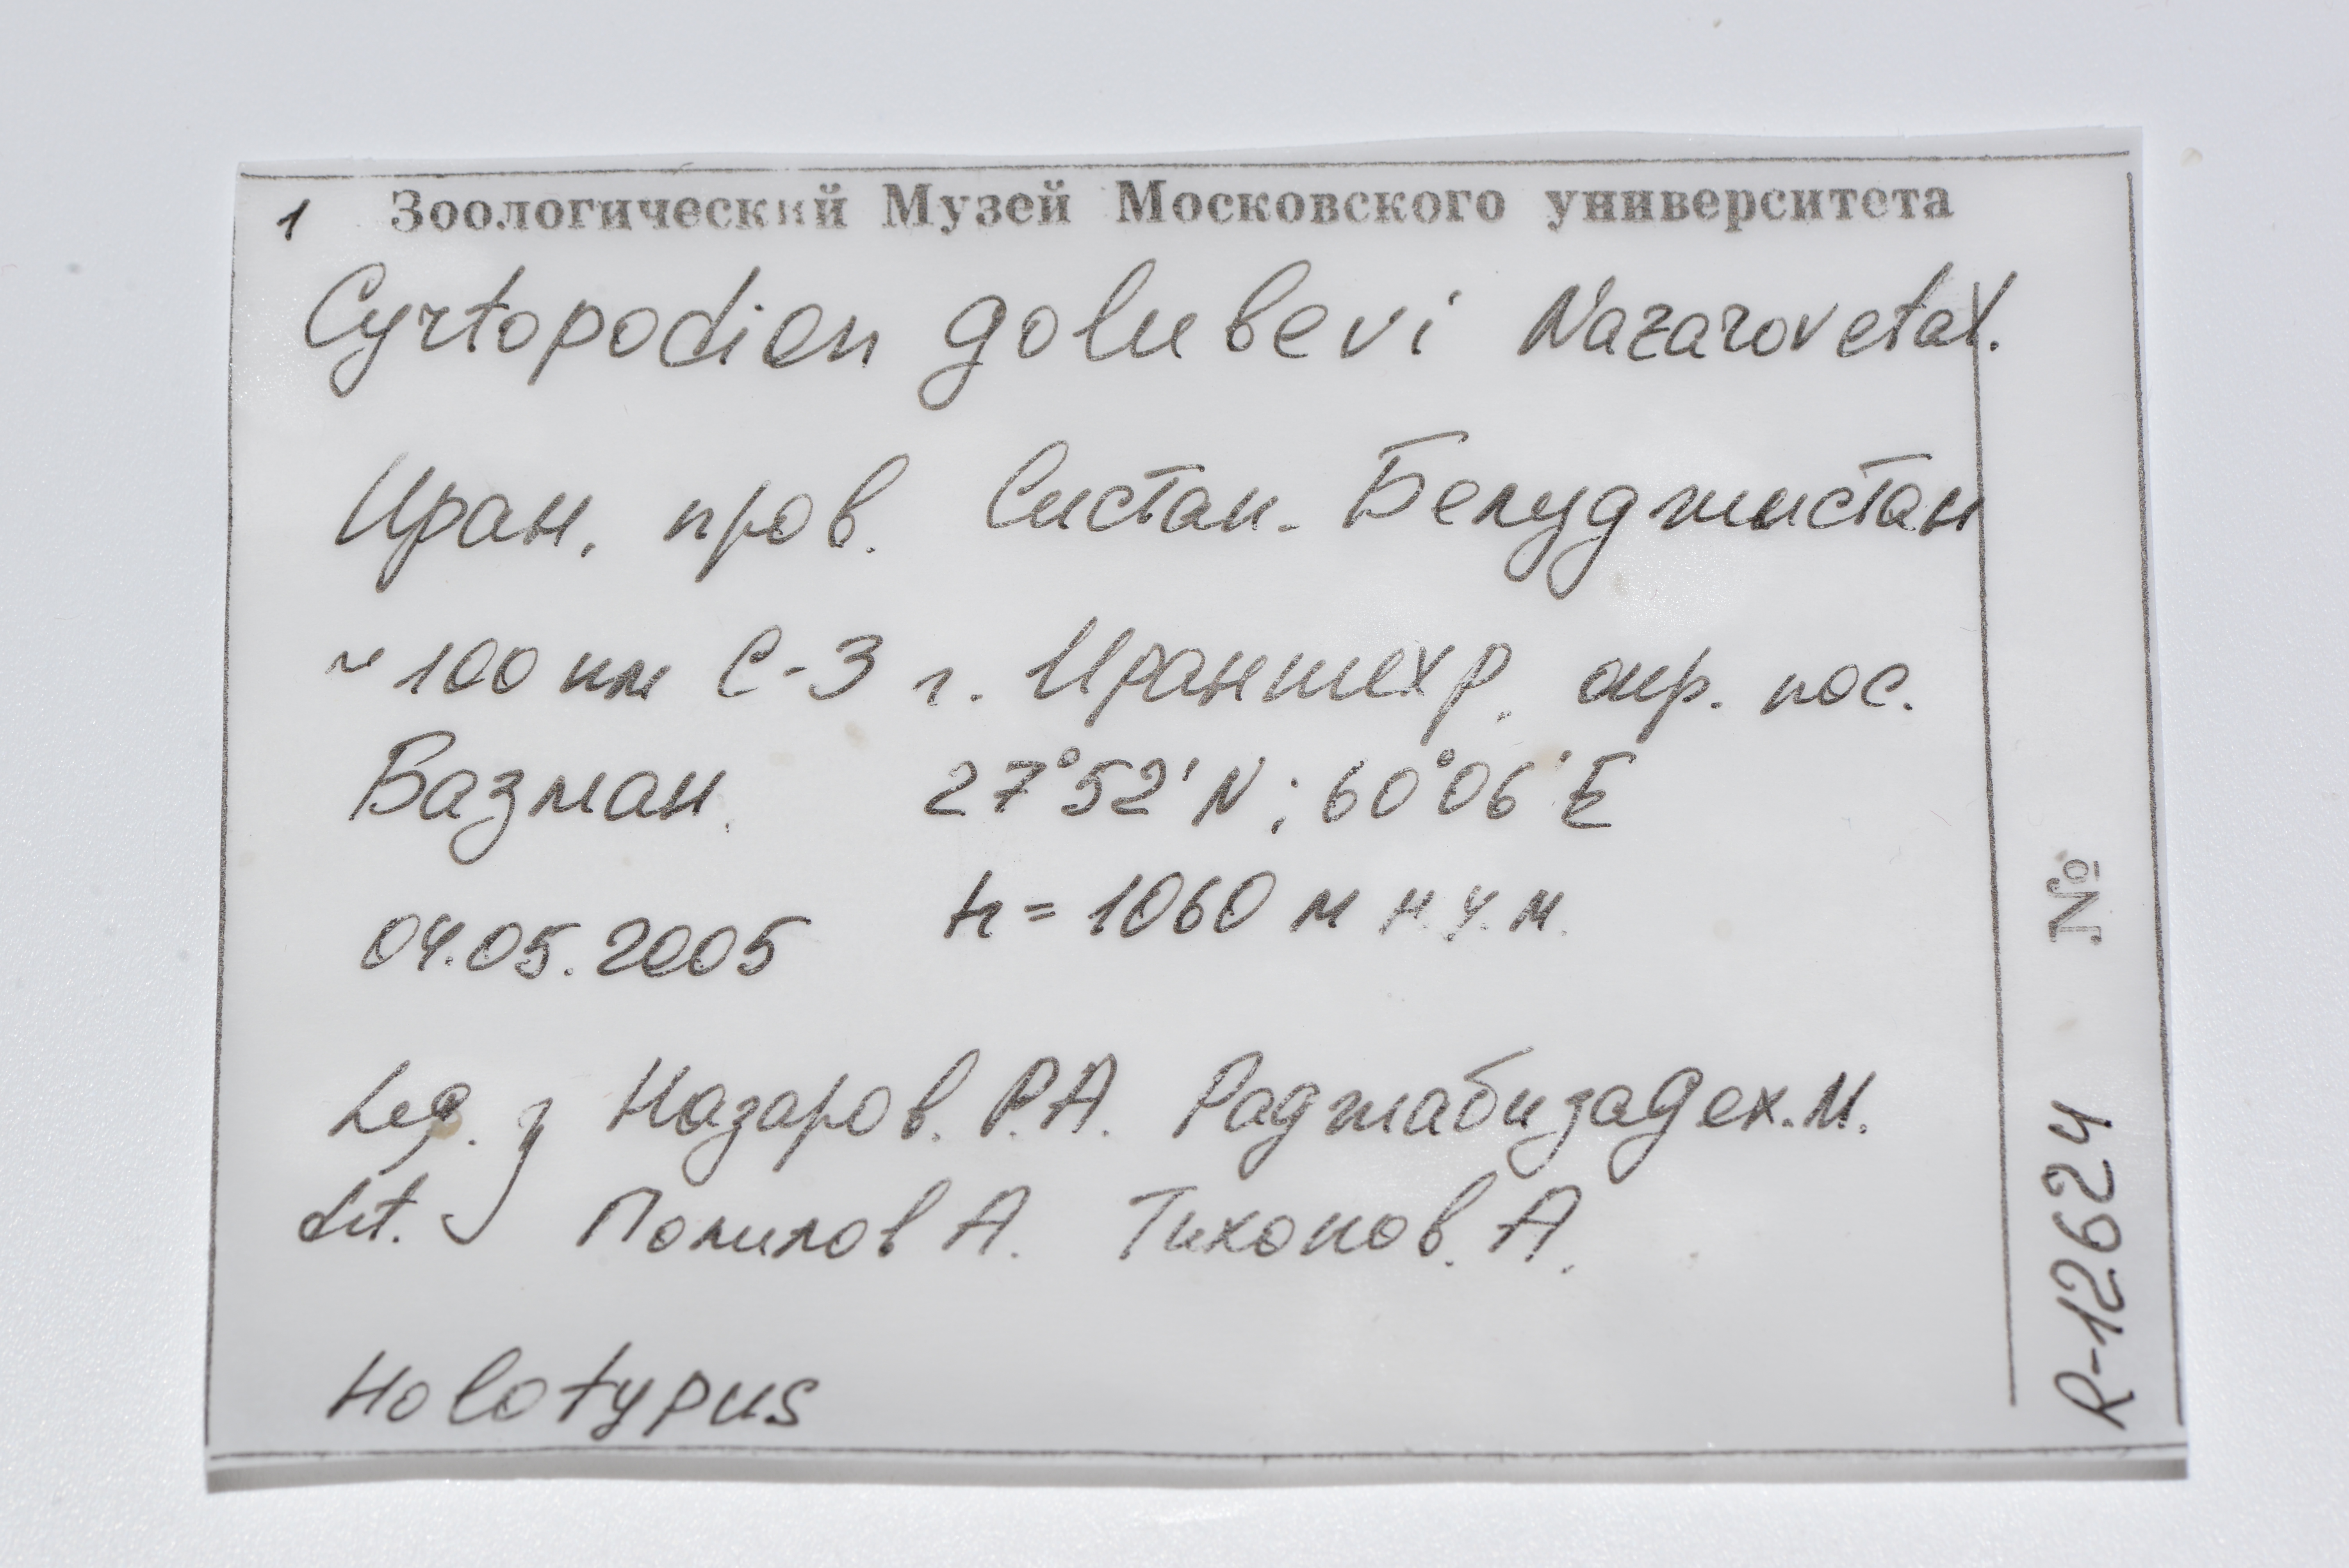 1 Зоологический Музей Московского университета
Cyrtopodion golubevi Nazarov et al.
Иран, пров. Систан. Белуджистан
~ 100 км С-З г. Ираншехр, окр. пос.
Базман. 27°52' N ; 60°06' E
h = 1060 м н.у.м.
04.05.2005
Leg. Назаров. Р.А. Раджабизадех. М.
det. Полилов А. Тихонов. А.
Holotypus
R-12624 №